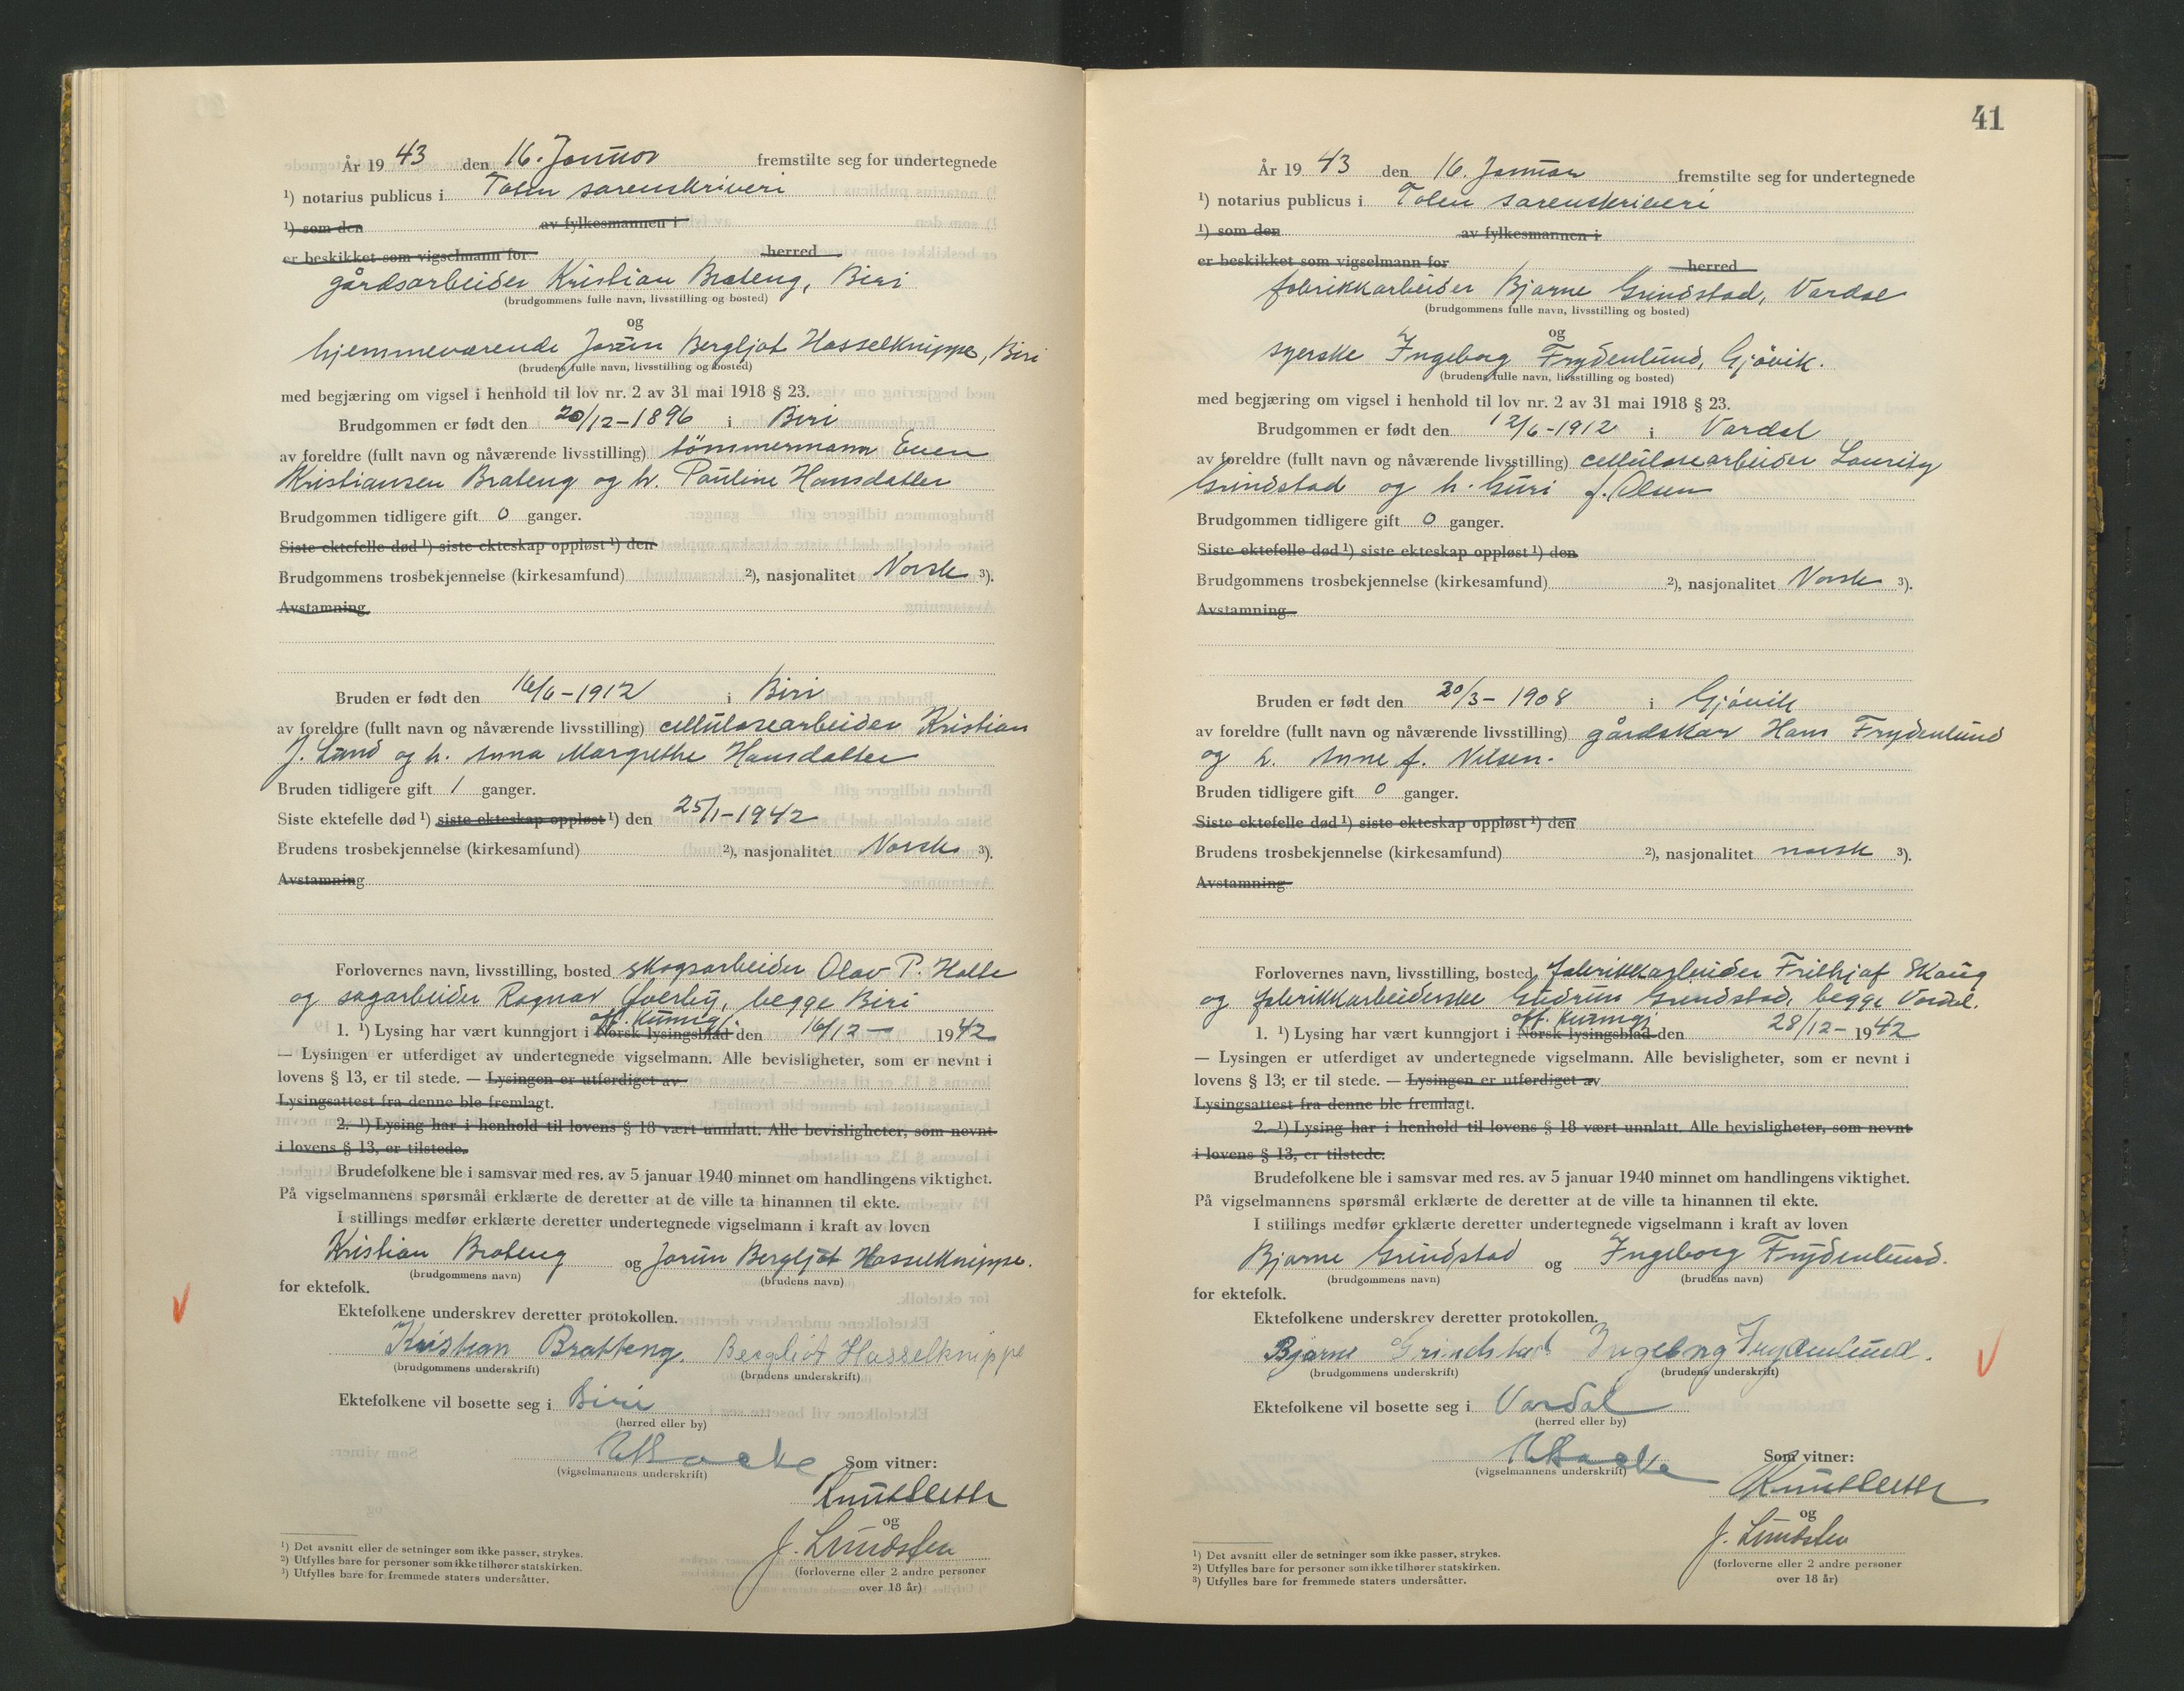 År 19 43 den 16. Januar fremstilte seg for undertegnede
¹) notarius publicus i Toten sorenskriveri
¹) som den av fylkesmannen i
er beskikket som vigselmann for herred
gårdsarbeider Kristian Brateng, Biri
(brudgommens fulle navn, livsstilling og bosted)
og
hjemmeværende Jorün Bergljot Hasselknippe, Biri
(brudens fulle navn, livsstilling og bosted)
med begjæring om vigsel i henhold til lov nr. 2 av 31 mai 1918 § 23.
Brudgommen er født den 20/12-1896 i Biri
av foreldre (fullt navn og nåværende livsstilling) tömmermann Even
Kristiansen Brateng og h. Pauline Hansdatter
Brudgommen tidligere gift 0 ganger.
Siste ektefelle død ¹) siste ekteskap oppløst ¹) den
Brudgommens trosbekjennelse (kirkesamfund) ²), nasjonalitet Norsk ³).
Avstamning
Bruden er født den 16/6-1912 i Biri
av foreldre (fullt navn og nåværende livsstilling) cellulosearbeider Kristian
J. Lund og h. Anna Margrethe Hansdatter
Bruden tidligere gift 1 ganger.
Siste ektefelle død ¹) siste ekteskap oppløst ¹) den 25/1-1942
Brudens trosbekjennelse (kirkesamfund) ²), nasjonalitet Norsk ³).
Avstamning
Forlovernes navn, livsstilling, bosted skogsarbeider Olav P. Holte
og sagarbeider Ragnar Øverby, begge Biri
off. kunngj.
1. ¹) Lysing har vært kunngjort i Norsk lysingsblad den 16/12- 1942
— Lysingen er utferdiget av undertegnede vigselmann. Alle bevisligheter, som er nevnt i
lovens § 13, er til stede. — Lysingen er utferdiget av
Lysingsattest fra denne ble fremlagt.
2. ¹) Lysing har i henhold til lovens § 18 vært unnlatt. Alle bevisligheter, som nevnt
i lovens § 13, er tilstede.
Brudefolkene ble i samsvar med res. av 5 januar 1940 minnet om handlingens viktighet.
På vigselmannens spørsmål erklærte de deretter at de ville ta hinannen til ekte.
I stillings medfør erklærte deretter undertegnede vigselmann i kraft av loven
Kristian Brateng og Jorün Bergljot Hasselknippe.
(brudgommens navn) (brudens navn)
for ektefolk.
Ektefolkene underskrev deretter protokollen.
Kristian Bratteng. Bergliot Hasselknippe
(brudgommens underskrift) (brudens underskrift)
Ektefolkene vil bosette seg i Biri
(herred eller by)
Som vitner:
(vigselmannens underskrift)
og
J. Lundsten
(forloverne eller 2 andre personer
over 18 år)
¹) Det avsnitt eller de setninger som ikke passer, strykes.
²) Utfylles bare for personer som ikke tilhører statskirken.
³) Utfylles bare for fremmede staters undersåtter.
41
År 19 43 den 16. Januar fremstilte seg for undertegnede
¹) notarius publicus i Toten sorenskriveri
¹) som den av fylkesmannen i
er beskikket som vigselmann for herred
fabrikkarbeider Bjarne Grindstad, Vardal
(brudgommens fulle navn, livsstilling og bosted)
og
syerske Ingeborg Frydenlund, Gjövik.
(brudens fulle navn, livsstilling og bosted)
med begjæring om vigsel i henhold til lov nr. 2 av 31 mai 1918 § 23.
Brudgommen er født den 12/6-1912 i Vardal
av foreldre (fullt navn og nåværende livsstilling) cellulosearbeider Lauritz
Grindstad og h. Guri f. Olsen
Brudgommen tidligere gift 0 ganger.
Siste ektefelle død ¹) siste ekteskap oppløst ¹) den
Brudgommens trosbekjennelse (kirkesamfund) ²), nasjonalitet Norsk ³).
Avstamning
Bruden er født den 30/3-1908 i Gjövik
av foreldre (fullt navn og nåværende livsstilling) gårdskar Hans Frydenlund
og h. Anne f. Nilsen.
Bruden tidligere gift 0 ganger.
Siste ektefelle død ¹) siste ekteskap oppløst ¹) den
Brudens trosbekjennelse (kirkesamfund) ²), nasjonalitet norsk ³).
Avstamning
Forlovernes navn, livsstilling, bosted fabrikkarbeider Frithjof Skaug
og fabrikkarbeiderske Gudrun Grindstad, begge Vardal.
off. kunngj.
1. ¹) Lysing har vært kunngjort i Norsk lysingsblad den 28/12- 1942
— Lysingen er utferdiget av undertegnede vigselmann. Alle bevisligheter, som er nevnt i
lovens § 13, er til stede. — Lysingen er utferdiget av
Lysingsattest fra denne ble fremlagt.
2. ¹) Lysing har i henhold til lovens § 18 vært unnlatt. Alle bevisligheter, som nevnt
i lovens § 13, er tilstede.
Brudefolkene ble i samsvar med res. av 5 januar 1940 minnet om handlingens viktighet.
På vigselmannens spørsmål erklærte de deretter at de ville ta hinannen til ekte.
I stillings medfør erklærte deretter undertegnede vigselmann i kraft av loven
Bjarne Grindstad og Ingeborg Frydenlund.
(brudgommens navn) (brudens navn)
for ektefolk.
Ektefolkene underskrev deretter protokollen.
Bjarne Grindstad Ingeborg Frydenlund.
(brudgommens underskrift) (brudens underskrift)
Ektefolkene vil bosette seg i Vardal
(herred eller by)
Som vitner:
(vigselmannens underskrift)
og
J. Lundsten
(forloverne eller 2 andre personer
over 18 år)
¹) Det avsnitt eller de setninger som ikke passer, strykes.
²) Utfylles bare for personer som ikke tilhører statskirken.
³) Utfylles bare for fremmede staters undersåtter.